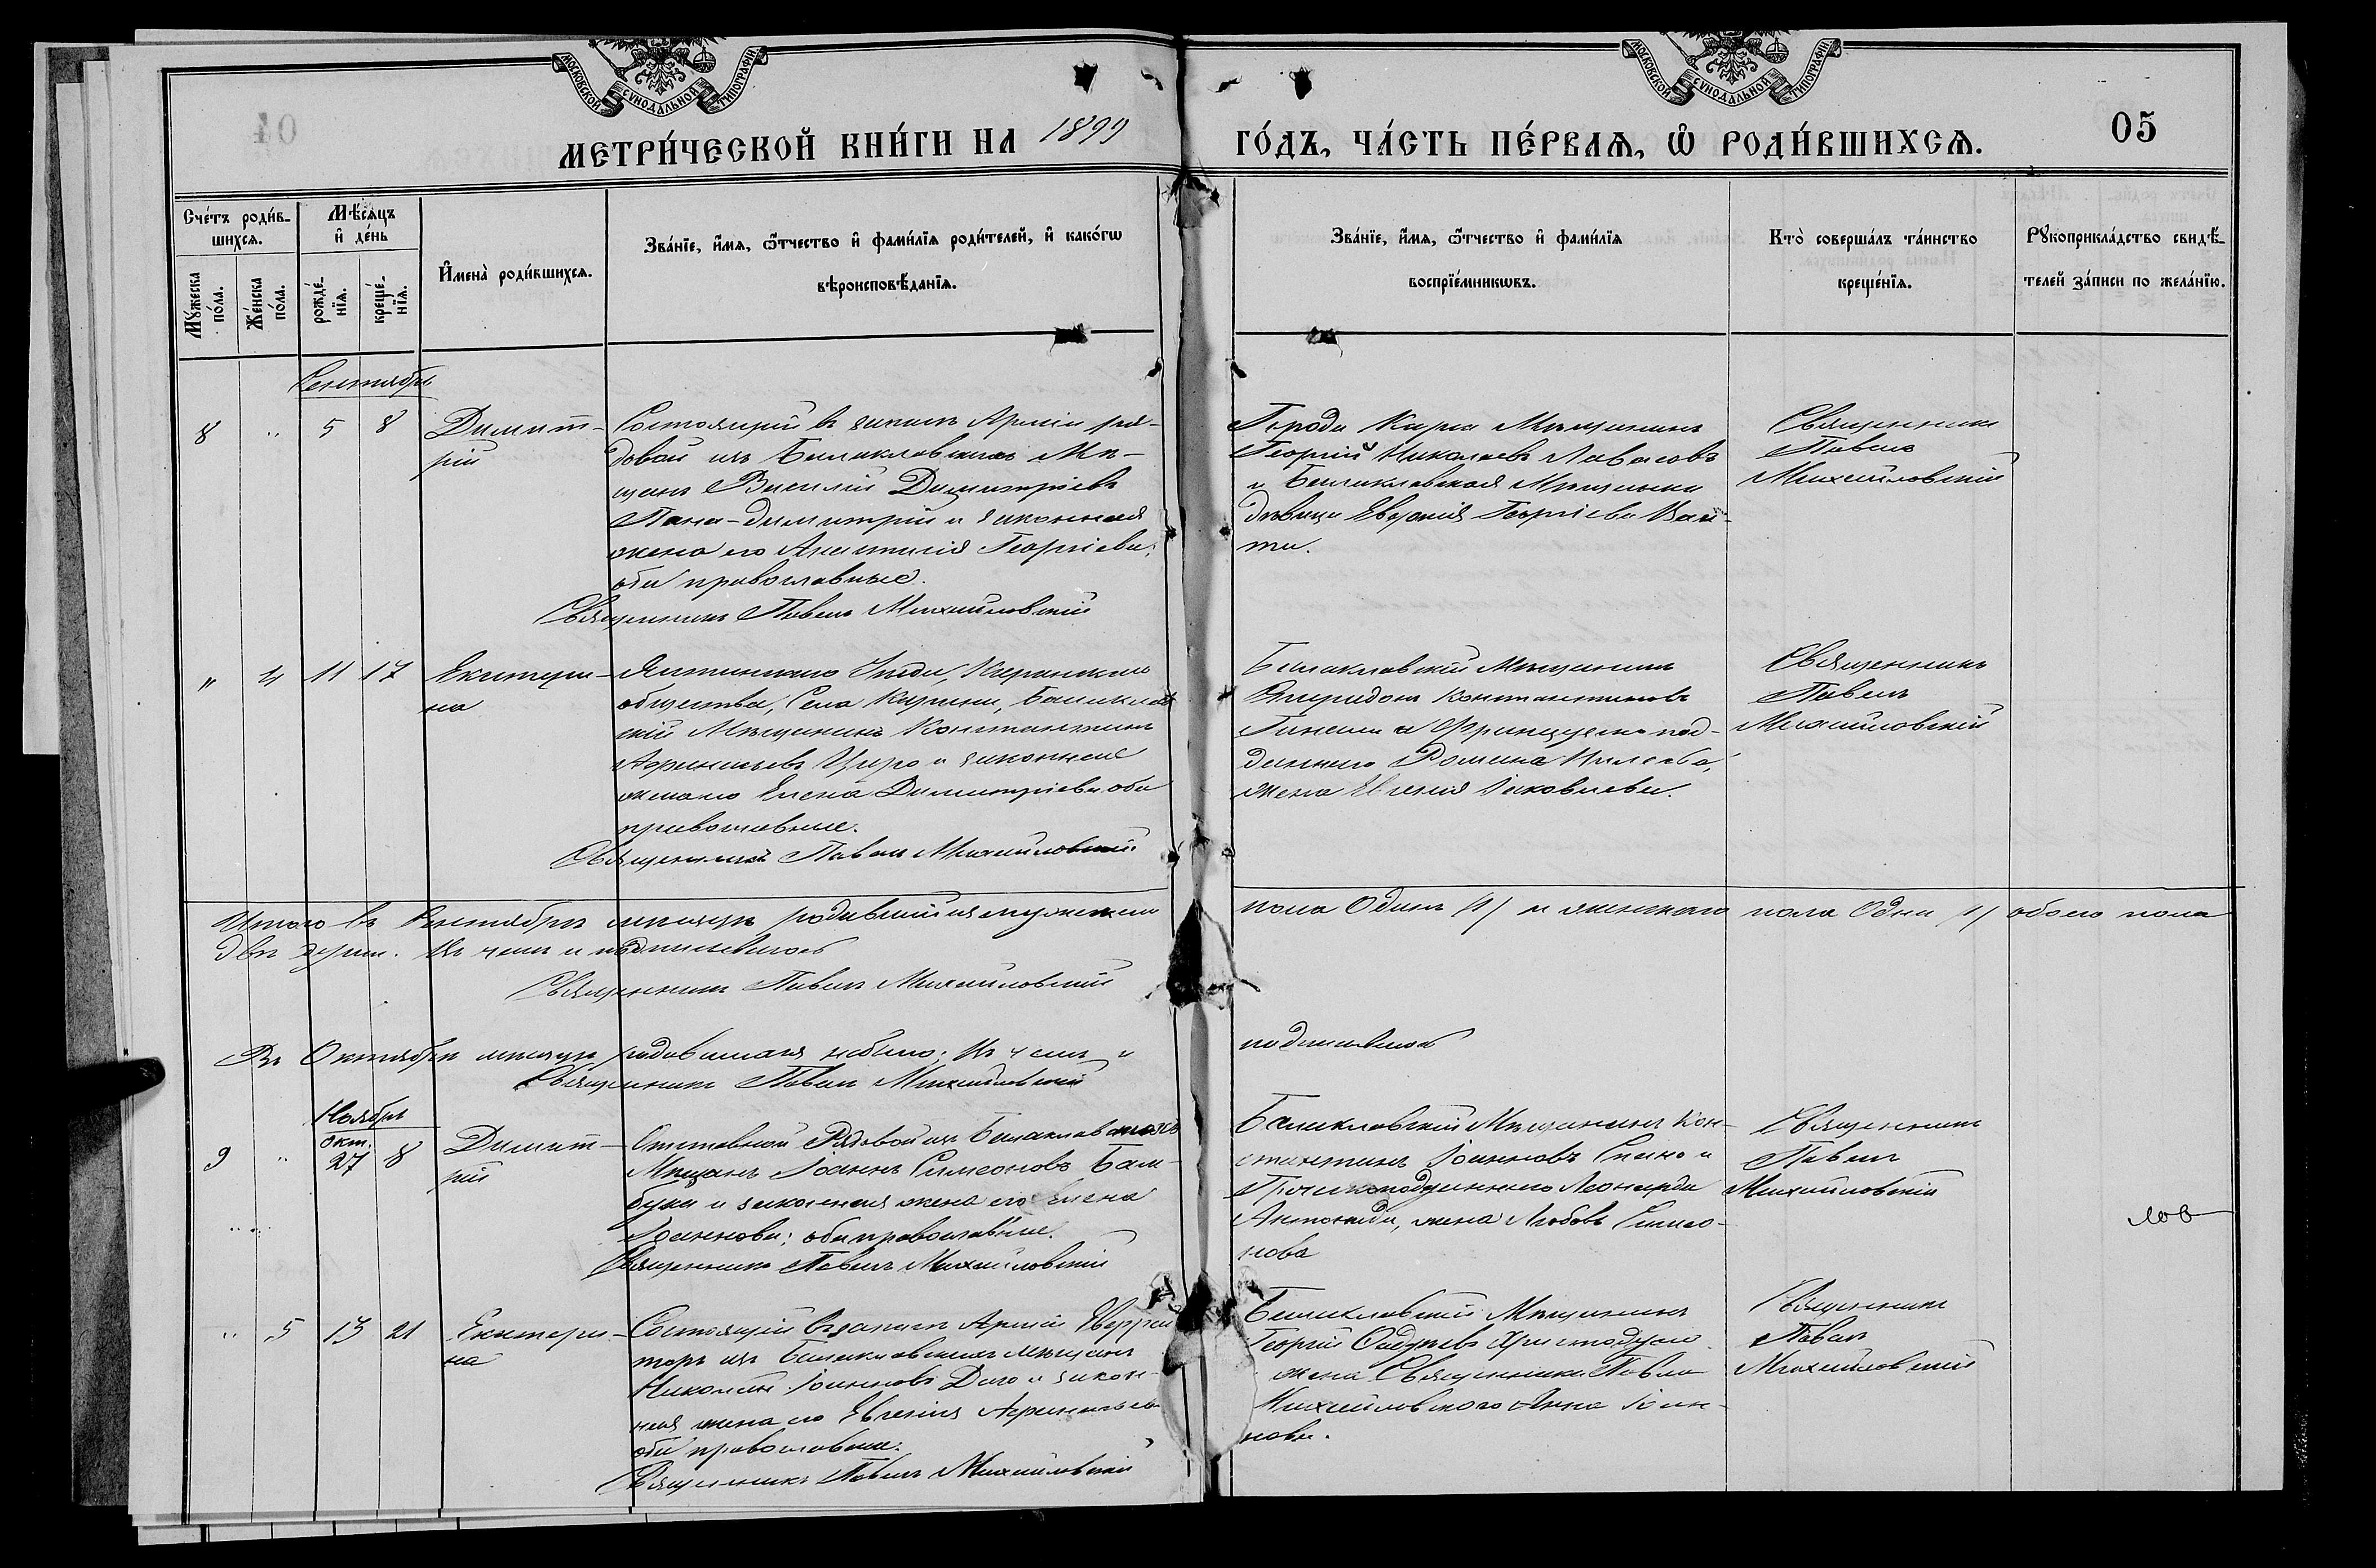 МОСКОВСКОЙ СѴНОДАЛЬНОЙ ТИПОГРАФІИ
МОСКОВСКОЙ СѴНОДАЛЬНОЙ ТИПОГРАФІИ
МЕТРИ́ЧЕСКОЙ КНИ́ГИ НА 1899 ГО́ДЪ, ЧА́СТЬ ПЕ́РВАѦ, Ѡ҆ РОДИ́ВШИХСѦ.
05
Сче́тъ роди́в-
шихсѧ.
Мꙋ́жеска
по́ла.
Же́нска
по́ла.
Мѣ́сѧцъ
и҆ де́нь
рожде́-
нїѧ.
креще́-
нїѧ.
И҆мена̀ роди́вшихсѧ.
Зва́нїе, и҆́мѧ, ѻ҆́тчество и҆ фами́лїѧ роди́телей, и҆ како́гѡ
вѣроисповѣ́данїѧ.
Зва́нїе, и҆́мѧ, ѻ҆́тчество и҆ фами́лїѧ
воспрїе́мникѡвъ.
Кто̀ соверша́лъ та́инство
креще́нїѧ.
Рꙋкоприкла́дство свидѣ́-
телей за́писи по жела́нїю.
Сентябрь
8 " 5 8
Димит-
рій
Состоящій въ запасѣ Арміи ря-
довой изъ Балаклавскихъ Мѣ-
щанъ Василій Димитріевъ
Папа-Димитрій и законная
жена его Анастасія Георгіева;
оба православные.
Священникъ Павелъ Михайловскій
Города Мѣщанинъ
Георгій Николаевъ
и Балаклавская Мѣщанка
дѣвица Георгіева
Священникъ
Павелъ
Михайловскій
" 4 11 17
Екатери-
на
Ялтинскаго
общества, Села Балаклав
скій Мѣщанинъ Константинъ
и законная
жена его Елена Димитріева оба
православные.
Священникъ Павелъ Михайловскій
Балаклавскій Мѣщанинъ
Спиридонъ Константиновъ
и Французско под-
даннаго
жена Евгенія Іаковлева.
Священникъ
Павелъ
Михайловскій
Итого въ Сентябрѣ мѣсяцѣ родившихся мужескаго пола Одинъ /1/ и женскаго пола Одна /1/ обоего пола
двѣ души. Въ чемъ и подписываюсь
Священникъ Павелъ Михайловскій
Въ Октябрѣ мѣсяцѣ родившихся небыло; Въ чемъ и подписываюсь
Священникъ Павелъ Михайловскій
Ноябрь
9 " окт. 27 8
Димит-
рій
Отставной Рядовой изъ Балаклавскихъ
Мѣщанъ Іоаннъ Симеоновъ Бам-
бука и законная жена его Елена
Іоаннова; оба православные.
Священникъ Павелъ Михайловскій
Балаклавскій Мѣщанинъ Кон-
стантинъ Іоанновъ и
Леонарди
жена Любовь
нова
Священникъ
Павелъ
Михайловскій
лов
" 5 13 21
Екатери-
на
Состоящій въ запасѣ Арміи
изъ Балаклавскихъ мѣщанъ
Николай Іоанновъ и закон-
ная жена его Евгенія
оба православные.
Священникъ Павелъ Михайловскій
Балаклавскій Мѣщанинъ
Георгій Христодуло
жена Священника Павла
Михайловскаго Анна Іоан-
нова.
Священникъ
Павелъ
Михайловскій